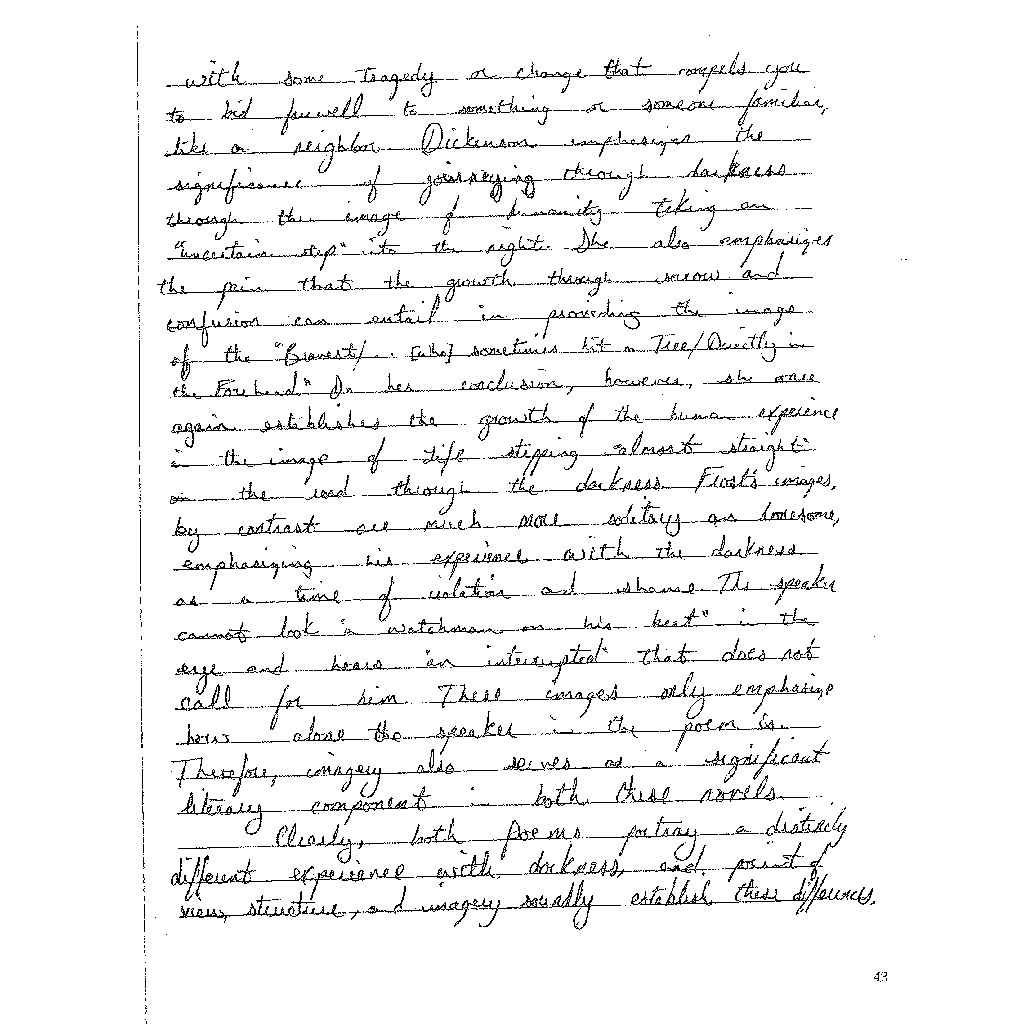 with some tragedy or change that compels you
to bid farewell to something or someone familiar,
like a neighbor. Dickinson emphasizes the
significance of journeying through darkness
through the image of humanity taking an
"uncertain step" into the night. She also emphasizes
the pain that the growth through sorrow and
confusion can entail in providing the image
of the "Bravest/ . . [who] sometimes hit a Tree/Directly in
the Forehead" In her conclusion, however, she once
again establishes the growth of the human experience
in the image of Life stepping "almost straight"
on the road through the darkness. Frost's images,
by contrast are much more solitary an lonesome,
emphasizing his experience with the darkness
as a time of isolation and shame. The speaker
cannot look "a watchman on his beat" in the
eye and hears "an interrupted" that does not
call for him. These images only emphasize
how alone the speaker in the poem is.
Therefore, imagery also serves as a significant
literary component in both these novels.
Clearly, both poems portray a distinctly
different experience with darkness, and point of
view, structure, and imagery establish these differences.
43